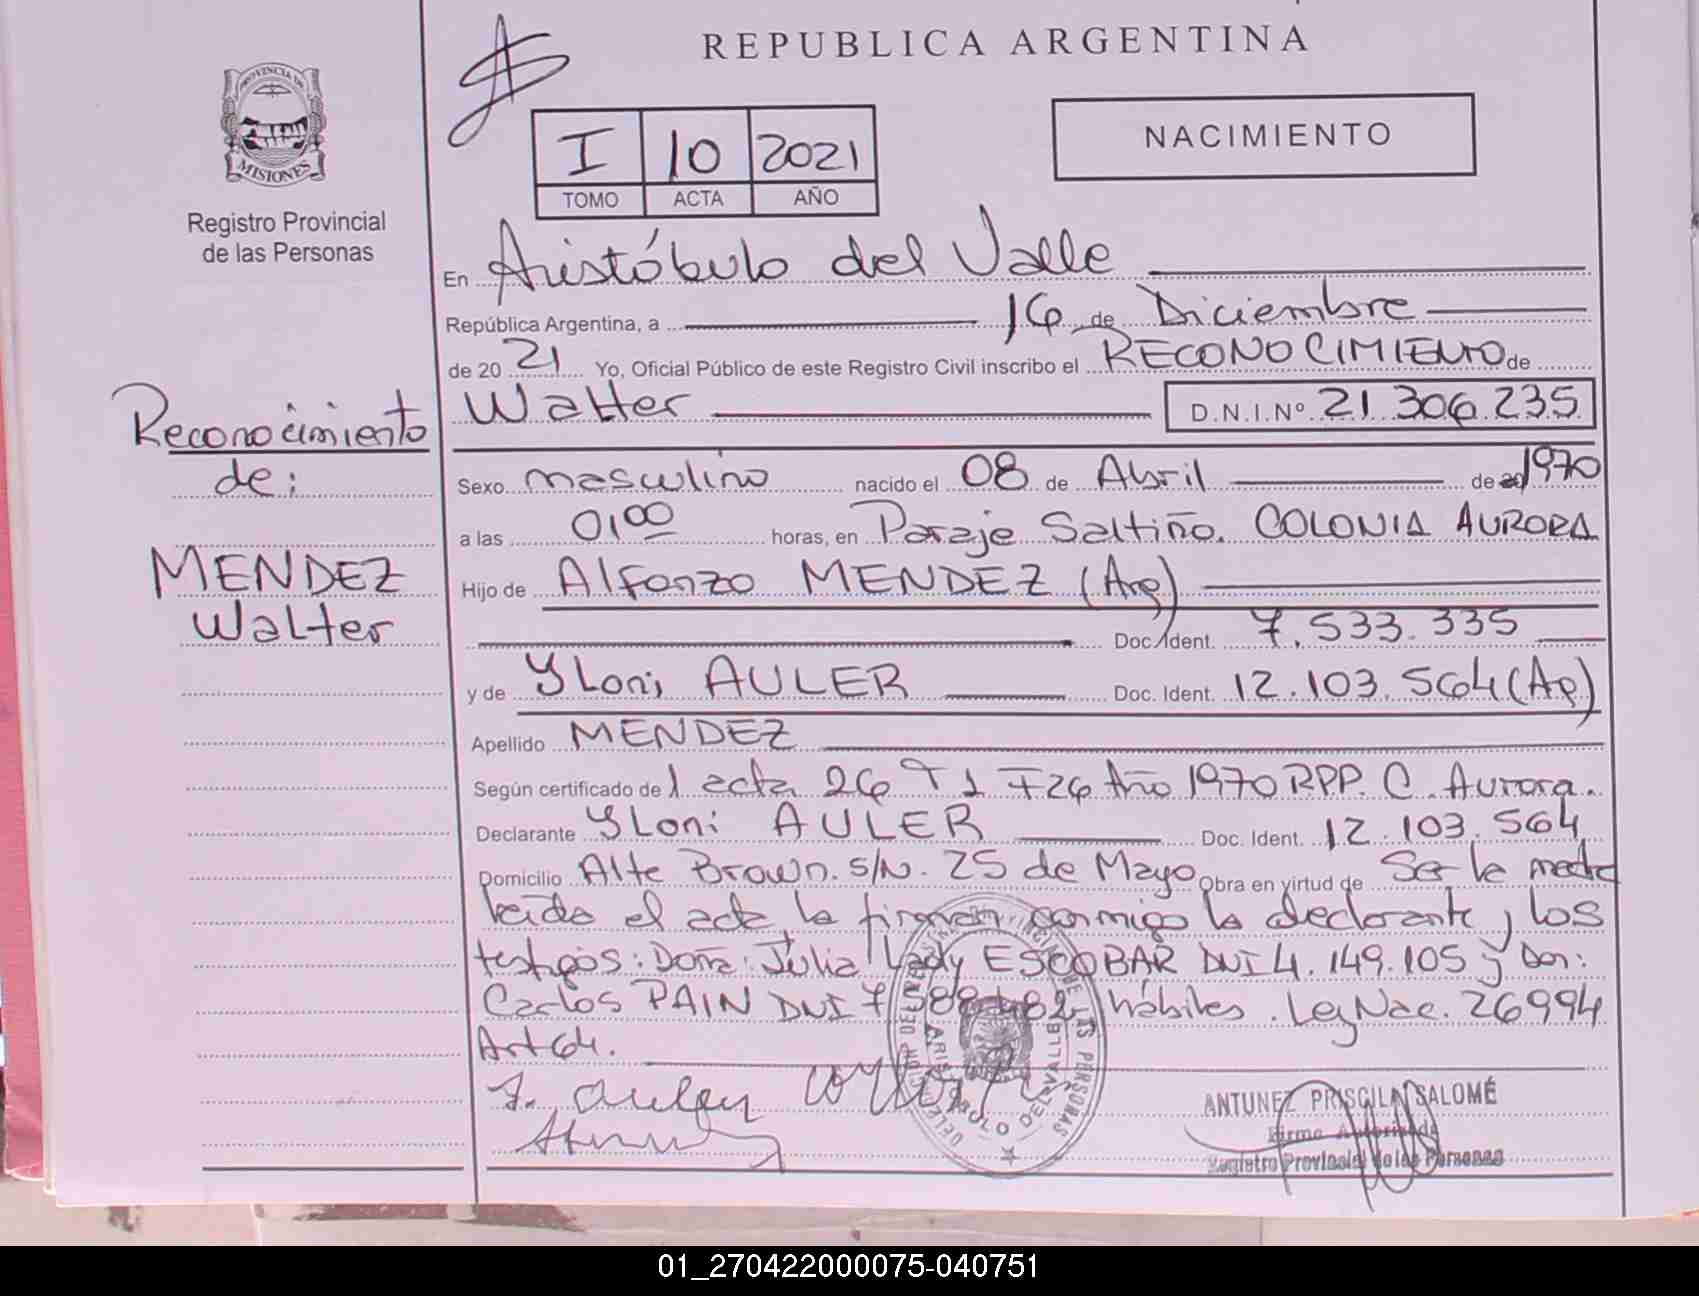 REPUBLICA ARGENTINA
PROVINCIA DE
MISIONES
Registro Provincial
de las Personas
I 10 2021
TOMO ACTA AÑO
NACIMIENTO
En Aristóbulo del Valle
República Argentina, a 16 de Diciembre
de 20 21 Yo, Oficial Público de este Registro Civil inscribo el RECONOCIMIENTO de
Walter D.N.I.Nº 21.306.235
Sexo masculino nacido el 08 de Abril de 1970
a las 01 00 horas, en Paraje Saltiño. COLONIA AURORA
Hijo de Alfonzo MENDEZ (Arg)
Doc. Ident. 7.533.335
y de YLoni AULER Doc. Ident. 12.103.564 (Ag)
Apellido MENDEZ
Según certificado de 1 acta 26 T 1 F26 Año 1970 RPP. C. Aurora.
Declarante YLoni AULER Doc. Ident. 12.103.564
Domicilio Alte Brown. s/N. 25 de Mayo Obra en virtud de Ser la madre
leida el acta, la firman conmigo la declarante y los
testigos: Doña: Julia Lady ESCOBAR DNI 4.149.105 y Don:
Carlos PAIN DNI 7 588 482 hábiles. Ley Nac. 26994
Art 64.
Y. Auler
ANTUNEZ PRISCILA SALOMÉ
Firma Autorizada
Registro Provincial de las Personas
Reconocimiento
de:
MENDEZ
Walter
01_270422000075-040751